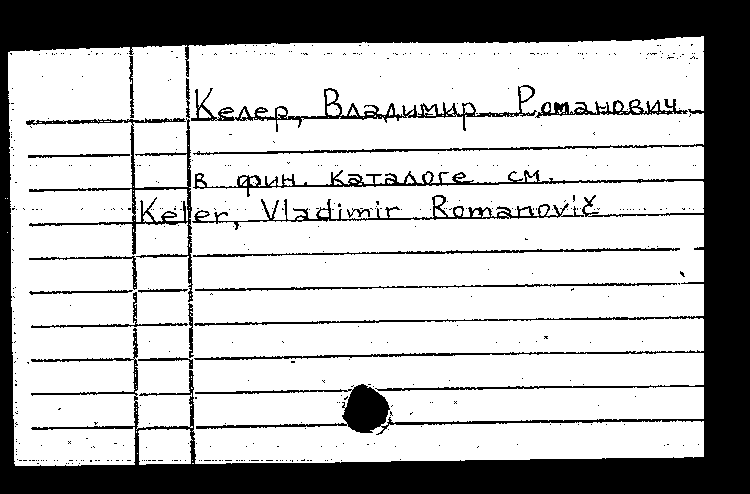 Келер, Владимир Романович.
в фин. каталоге см.
Keler, Vladimir Romanovič